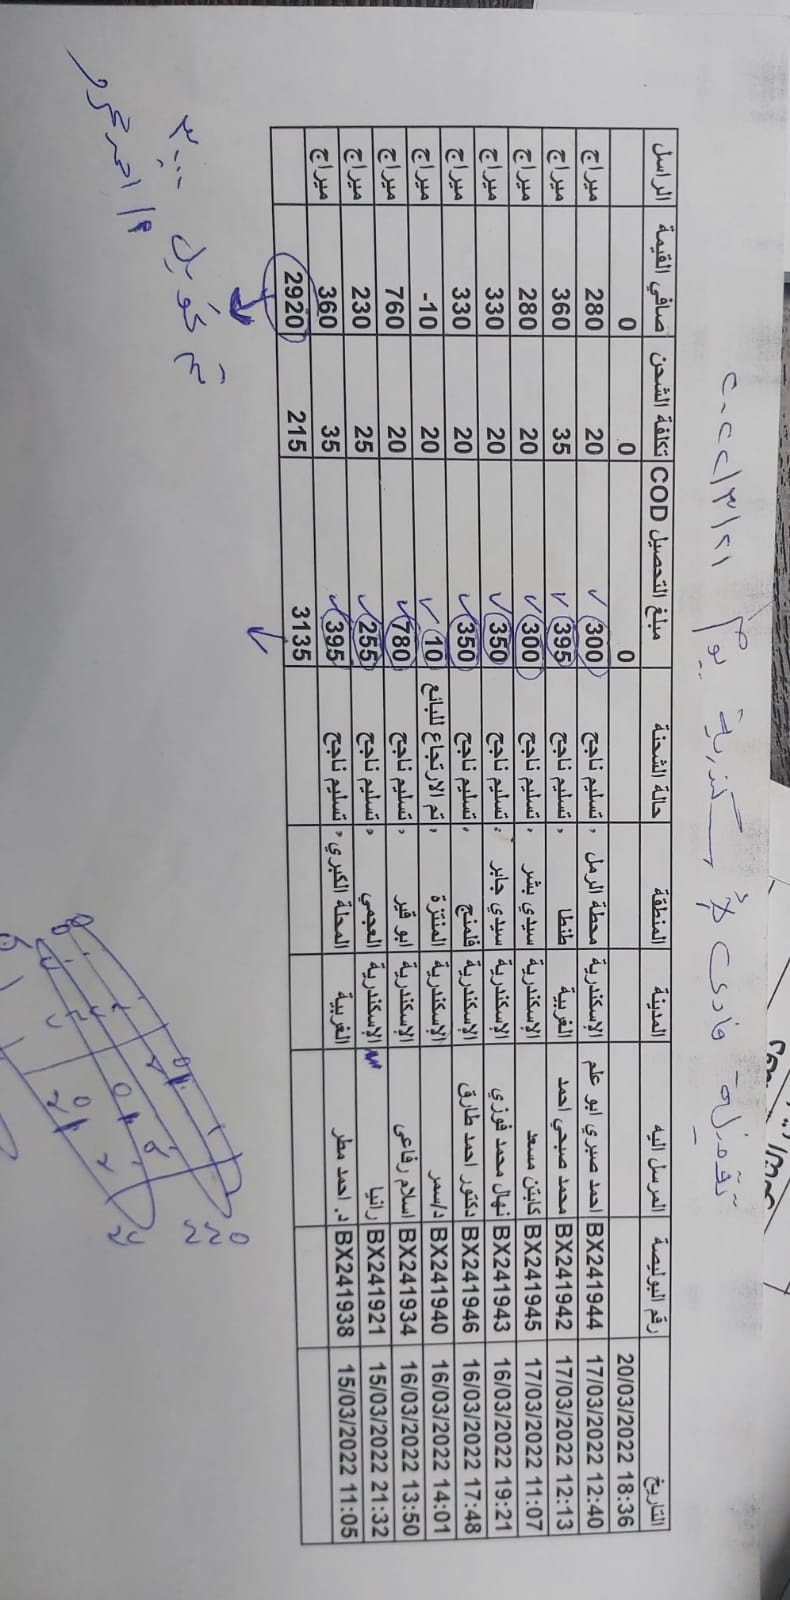 ٢٠٢٢/٣/٢١
التاريخ رقم البوليصة المرسل اليه المدينة المنطقة حالة الشحنة مبلغ التحصيل COD تكلفة الشحن صافي القيمة الراسل
20/03/2022 18:36 0 0 0
17/03/2022 12:40 BX241944 احمد صبري ابو علم الإسكندرية محطة الرمل تسليم ناجح , 300 20 280 ميراج
17/03/2022 12:13 BX241942 محمد صبحي احمد الغربية طنطا تسليم ناجح , 395 35 360 ميراج
17/03/2022 11:07 BX241945 كابتن مسعد الإسكندرية سيدي بشر تسليم ناجح , 300 20 280 ميراج
16/03/2022 19:21 BX241943 نهال محمد فوزي الإسكندرية سيدي جابر تسليم ناجح , 350 20 330 ميراج
16/03/2022 17:48 BX241946 دكتور احمد طارق الإسكندرية فلمنج تسليم ناجح , 350 20 330 ميراج
16/03/2022 14:01 BX241940 د/سمر الإسكندرية المنتزة تم الارتجاع للبائع , 10 20 -10 ميراج
16/03/2022 13:50 BX241934 اسلام رفاعى الإسكندرية ابو قير تسليم ناجح , 780 20 760 ميراج
15/03/2022 21:32 BX241921 رانيا الإسكندرية العجمي تسليم ناجح , 255 25 230 ميراج
15/03/2022 11:05 BX241938 د. احمد مطر الغربية المحلة الكبري تسليم ناجح , 395 35 360 ميراج
3135 215 2920
٣٠٠٠